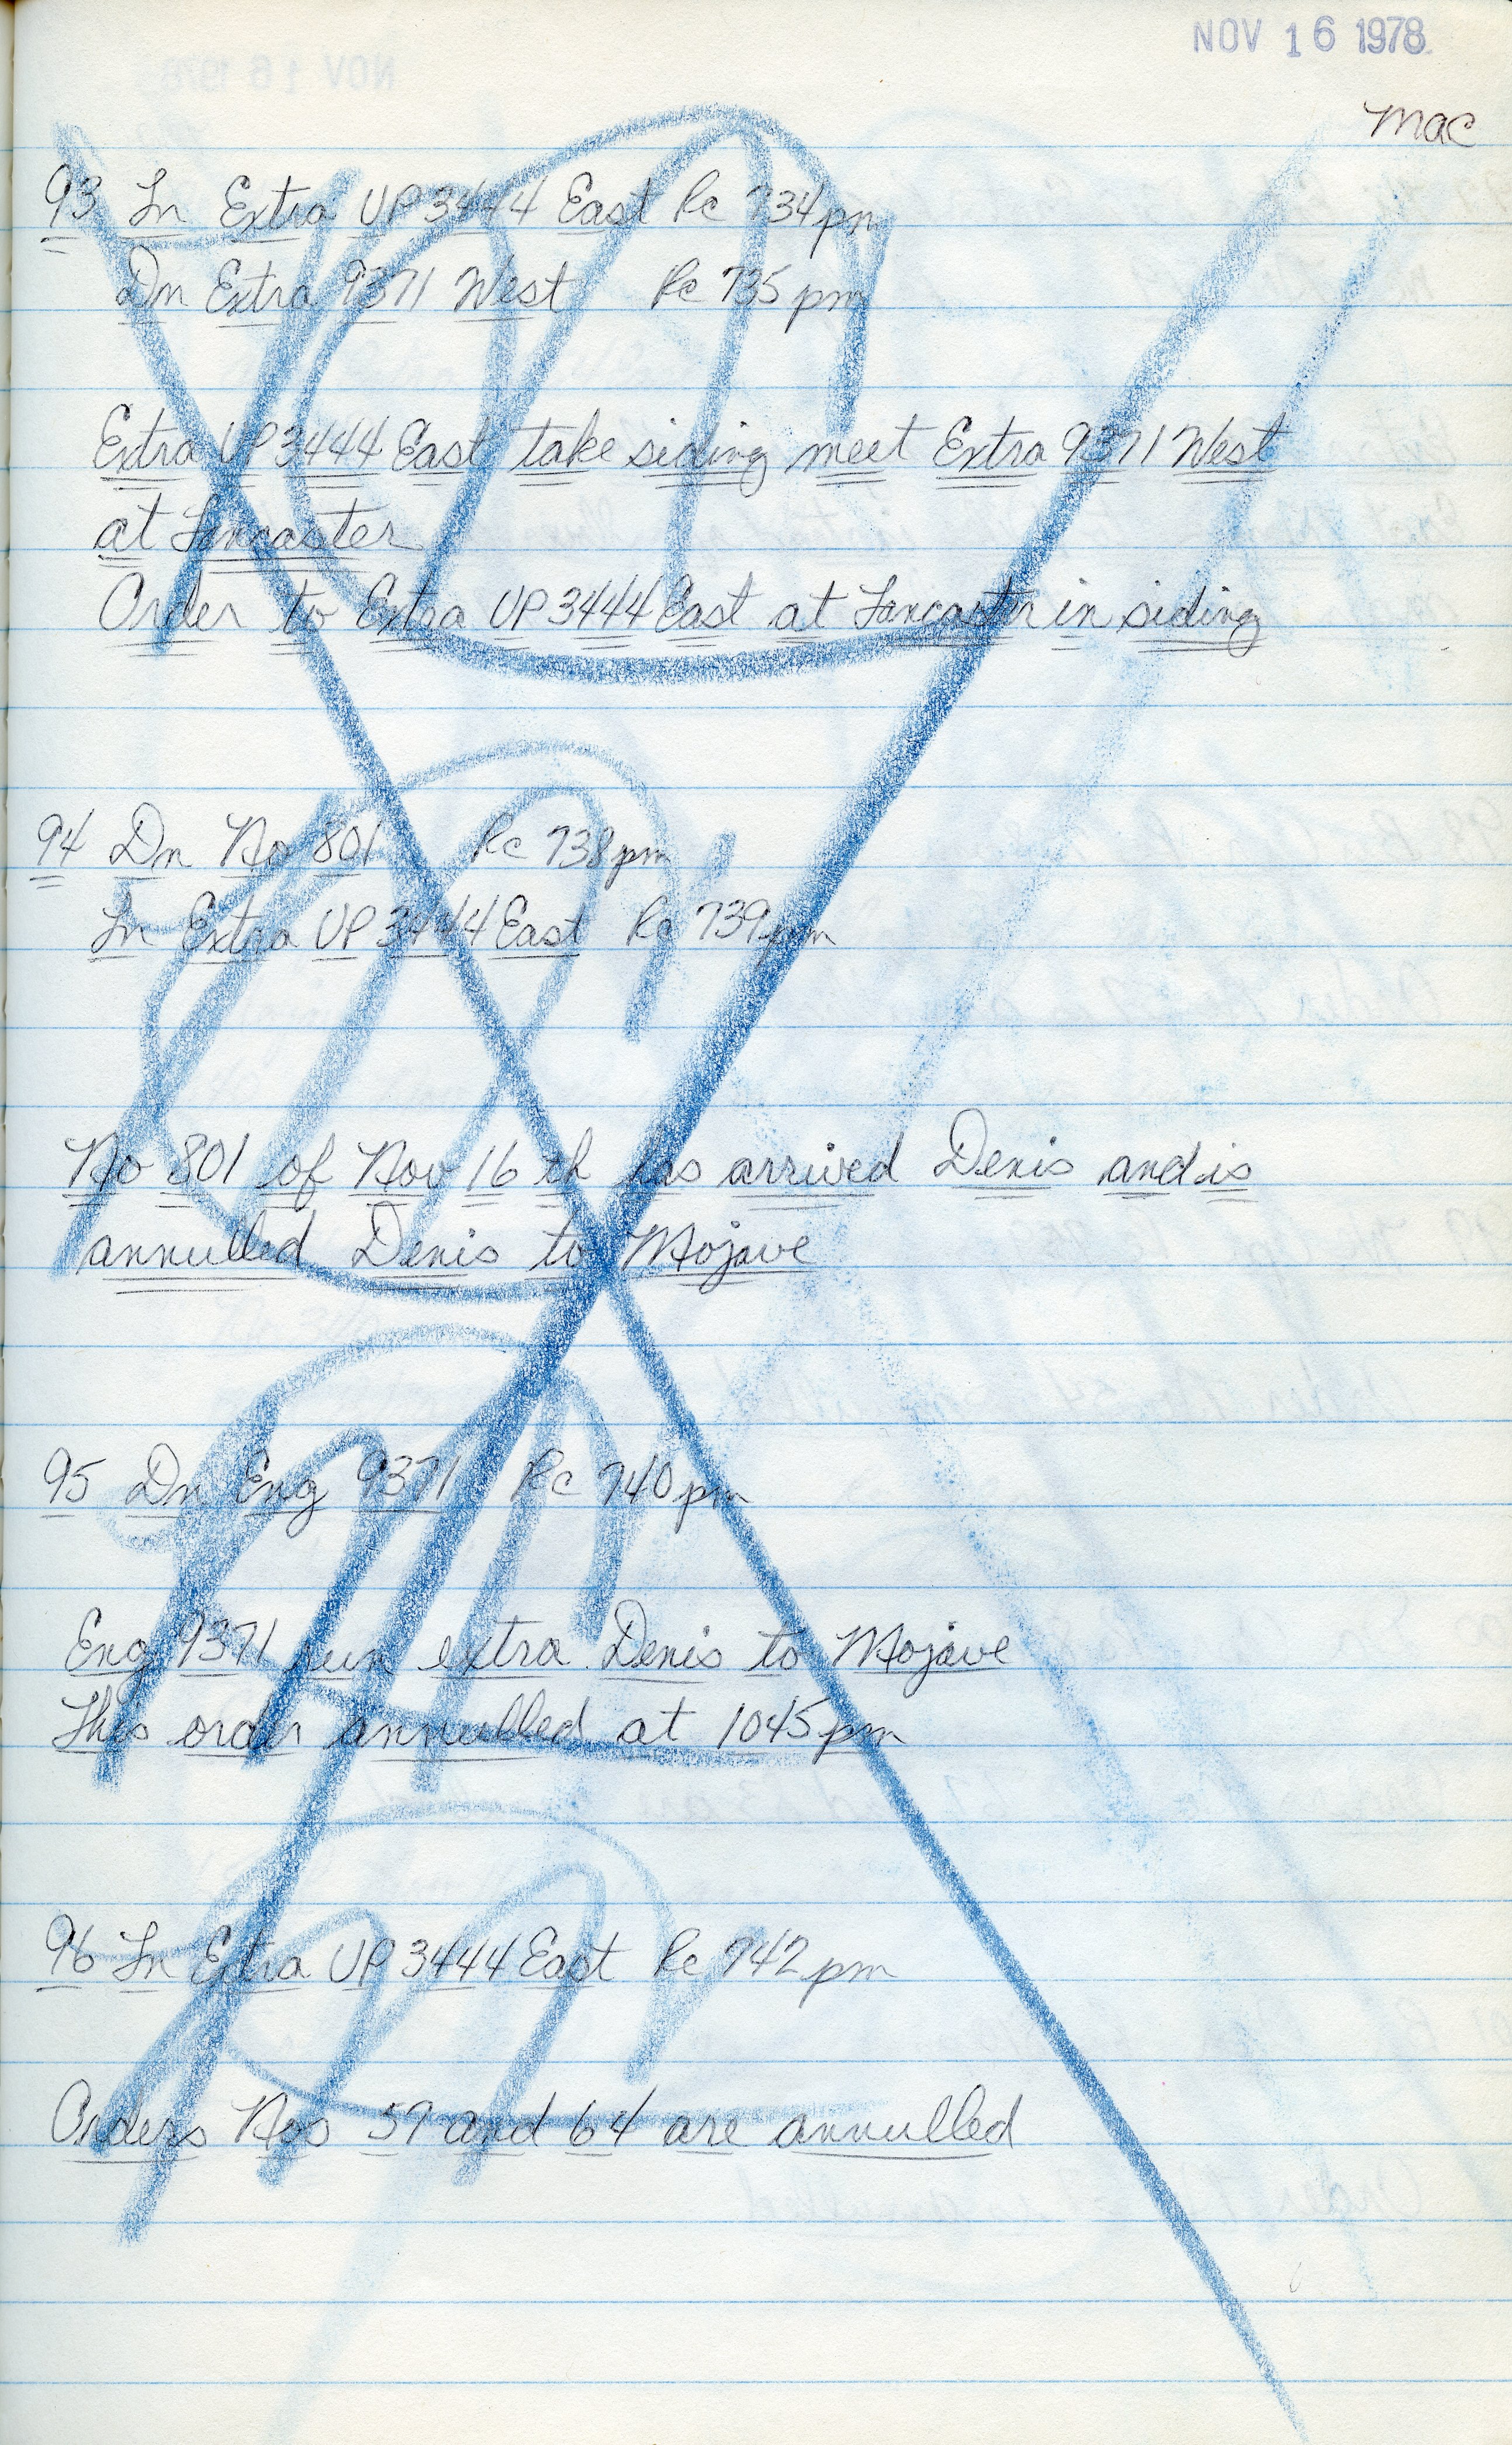 NOV 16 1978
Mac
93 Ln Extra UP 3444 East Rc 734 pm
Dn Extra 9371 West Rc 735 pm
Extra UP 3444 East take siding meet Extra 9371 West
at Lancaster
Order to Extra UP 3444 East at Lancaster in siding
94 Dn No 801 Rc 738 pm
Ln Extra UP 3444 East Rc 739 pm
No 801 of Nov 16 th has arrived Denis and is
annulled Denis to Mojave
95 Dn Eng 9371 Rc 740 pm
Eng 9371 run extra Denis to Mojave
This order annulled at 1045 pm
96 Ln Extra UP 3444 East Rc 742 pm
Orders Nos 59 and 64 are annulled